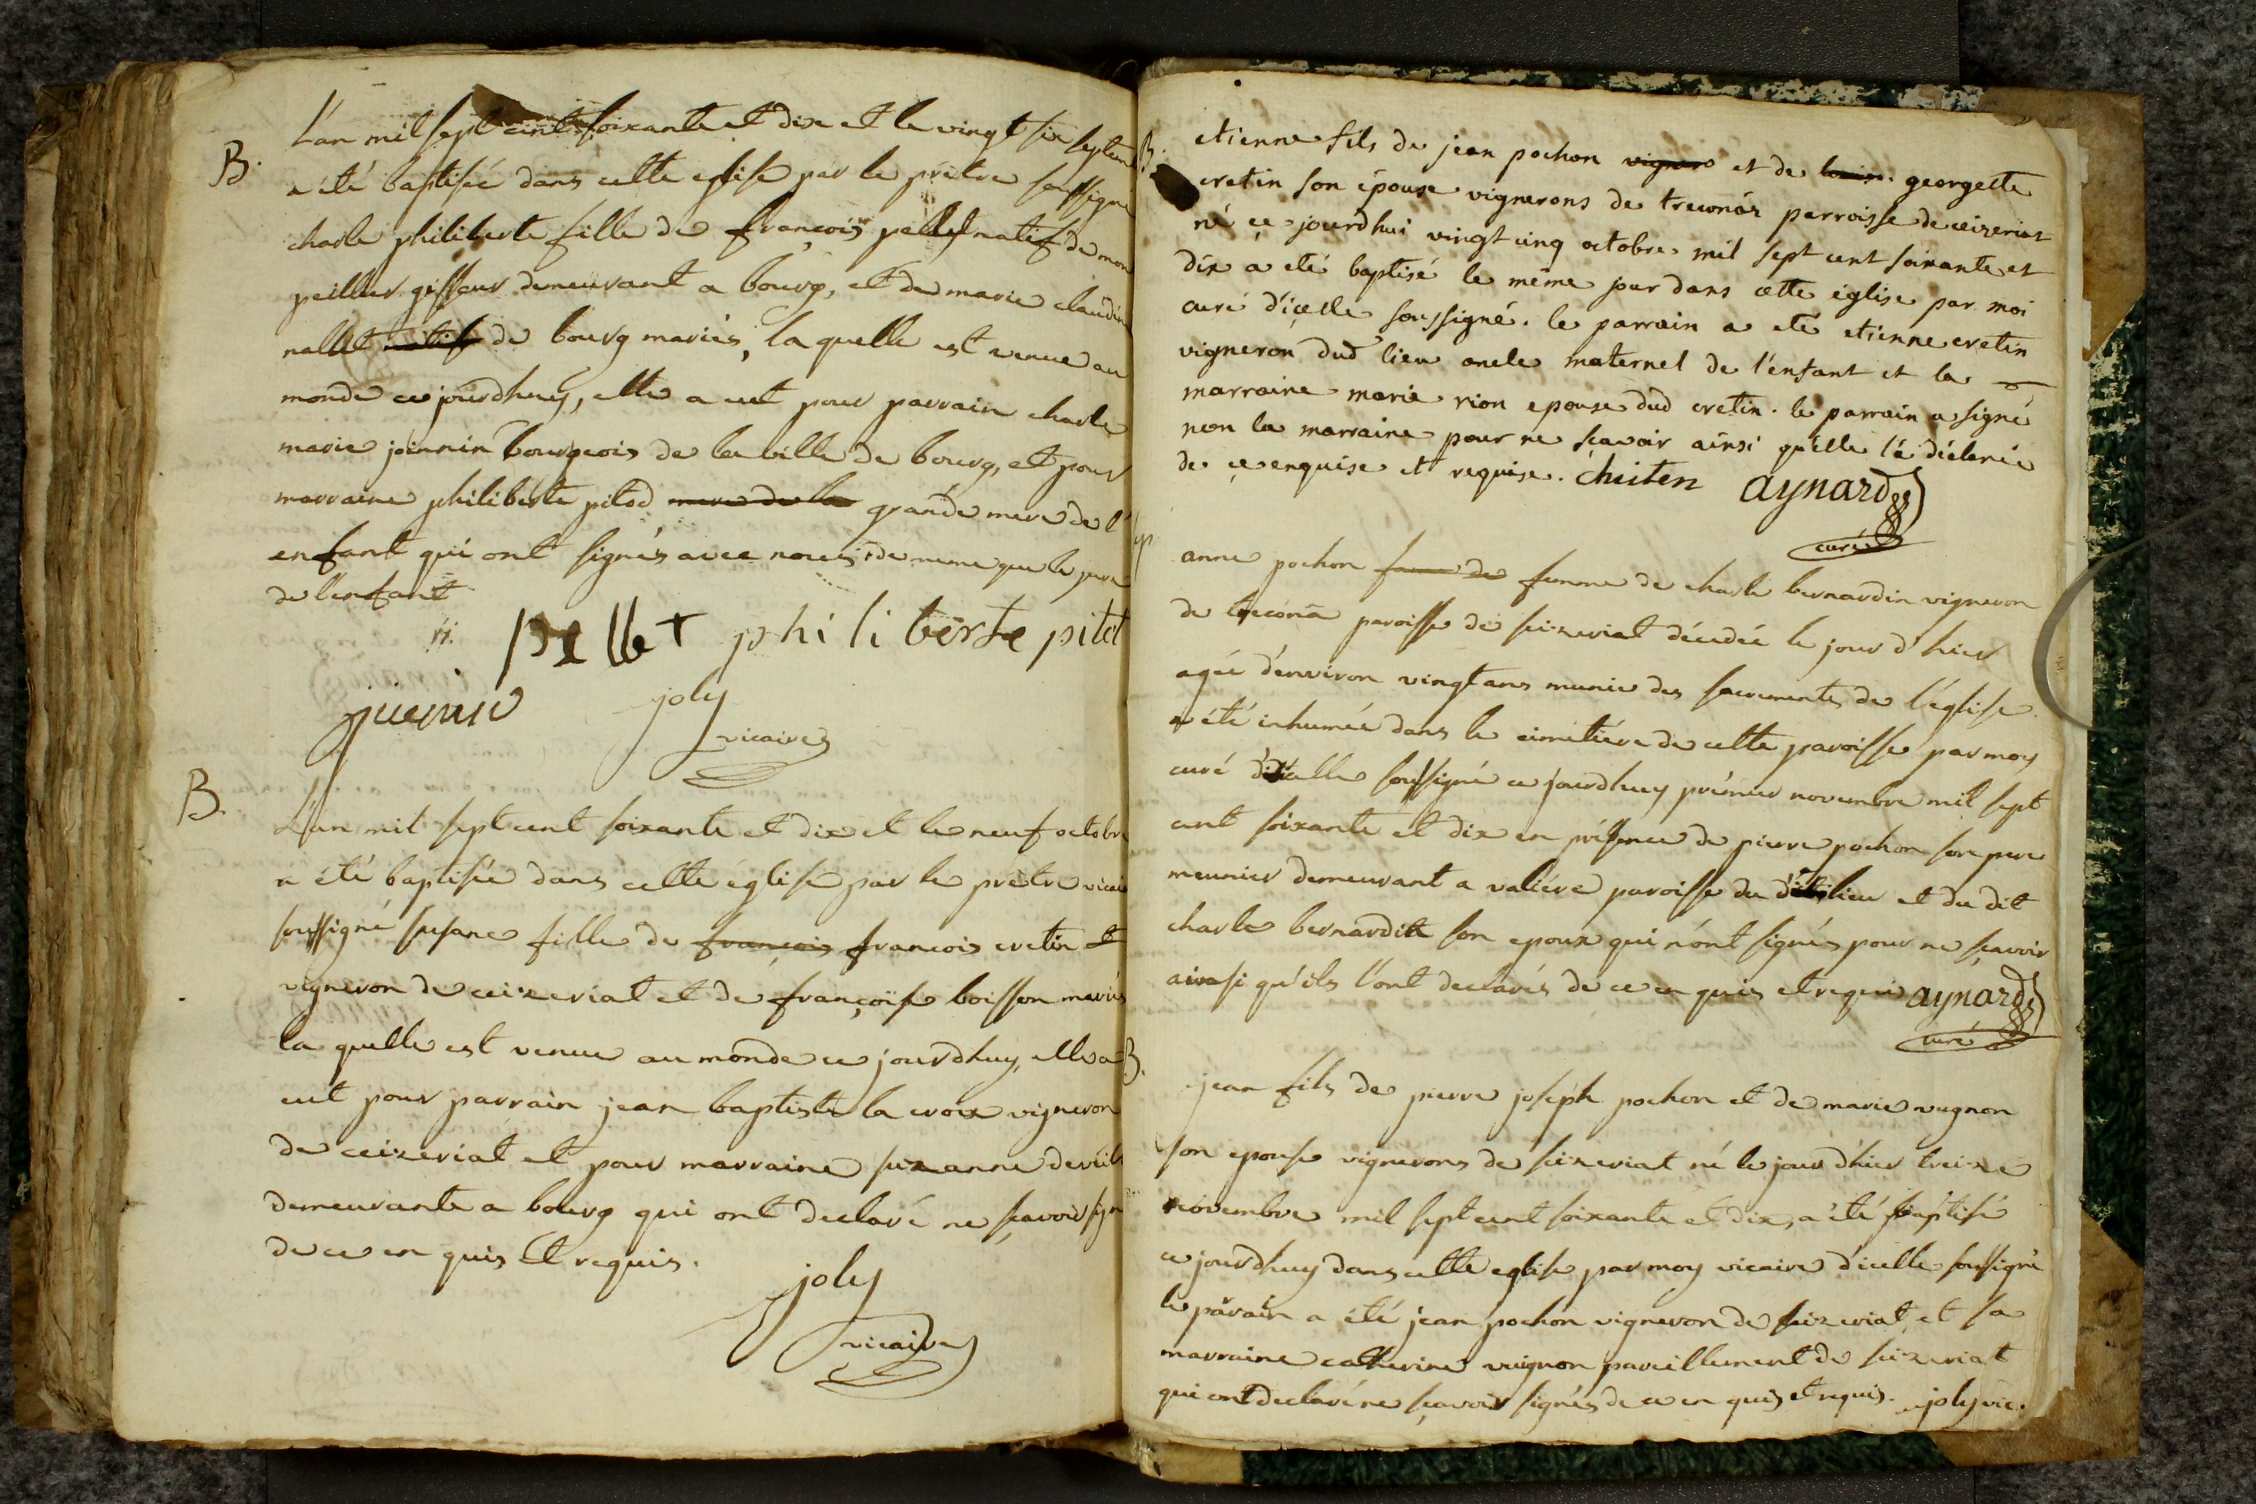 B. L'an mil sept cent soixante et dix et le vingt six septem
a été baptisée dans cette eglise par le prêtre soussigné
charle philiberte fille de françois pellet natif de mon
peillier gisseur demeurant a bourg, et de marie claudine
nallet de bourg mariés, la quelle est venue au
monde ce jourdhuy, elle a eut pour parrain charle
marie joinnin bourgeois de la ville de bourg, et pour
marraine philiberte pitod mere de la grande mere de l'
enfant qui ont signés avec nous, de meme que le pere
de l'enfant
pellet philiberte pitot
joly
vicaire
B. L'an mil sept cent soixante et dix et le neuf octobre
a été baptisée dans cette église par le prêtre vicaire
soussigné susane fille de françois françois cretin et
vigneron de ceizeriat et de françoise boisson mariés
la quelle est venue au monde ce jourdhuy, elle a
eut pour parrain jean baptiste la croix vigneron
de ceizeriat et pour marraine suzanne
demeurante a bourg qui ont declaré ne sçavoir sign
de ce en quis et requis.
joly
vicaire
B. etienne fils de jean pochon vigneron et de louise georgette
cretin son épouse vignerons de treconas parroisse de ceizeriat
né ce jourd'hui vingt cinq octobre mil sept cent soixante et
dix a eté baptisé le même jour dans cette église par moi
curé d'icelle soussigné. le parrain a eté etienne cretin
vigneron dud lieu oncle maternel de l'enfant et la
marraine marie rion epouse dud cretin. le parrain a signé
non la marraine pour ne sçavoir ainsi qu'elle l'a déclarée
de ce enquise et requise. chriten aynard
curé
anne pochon femme de femme de charle bernardin vigneron
de trecona paroisse de seizeriat décedée le jour d'hier
agée d'environ vingt ans munie des sacrements de l'église
a été inhumée dans le cimétiére de cette paroisse par moy
curé d'icelle soussigné ce jourdhuy prémier novembre mil sept
cent soixante et dix en présence de pierre pochon son pere
meunier demeurant a valiére paroisse du dit lieu et du dit
charle bernardin son epoux qui n'ont signés pour ne sçavoir
ainsi qu'ils l'ont declarés de ce en quis et requis aynard
curé
B. jean fils de pierre joséph pochon et de marie vugnon
son epouse vignerons de seizeriat né le jour d'hier treizé
novembre mil sept cent soixante et dix, a été baptisé
ce jourdhuy dans cette eglise par moy vicaire d'icelle soussigné
le párain a été jean pochon vigneron de seizeriat, et sa
marraine catherine vugnon pareillement de seizeriat
qui ont declaré ne sçavoir signés de ce en quis et requis. joly vic.